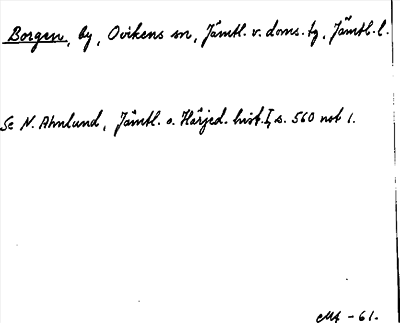 Borgen, by, Ovikens sn, Jämtl. v. doms. tg, Jämtl. l.
Se N. Ahnlund, Jämtl. o. Härjed. hist. I, s. 560 not 1.
-61.